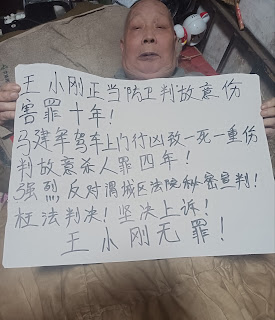 王小刚正当防卫判故意伤
害罪十年！
马建军驾车上门行凶致一死一重伤
判故意杀人罪四年！
强烈反对渭城区法院秘密宣判！
枉法判决！坚决上诉！
王小刚无罪！